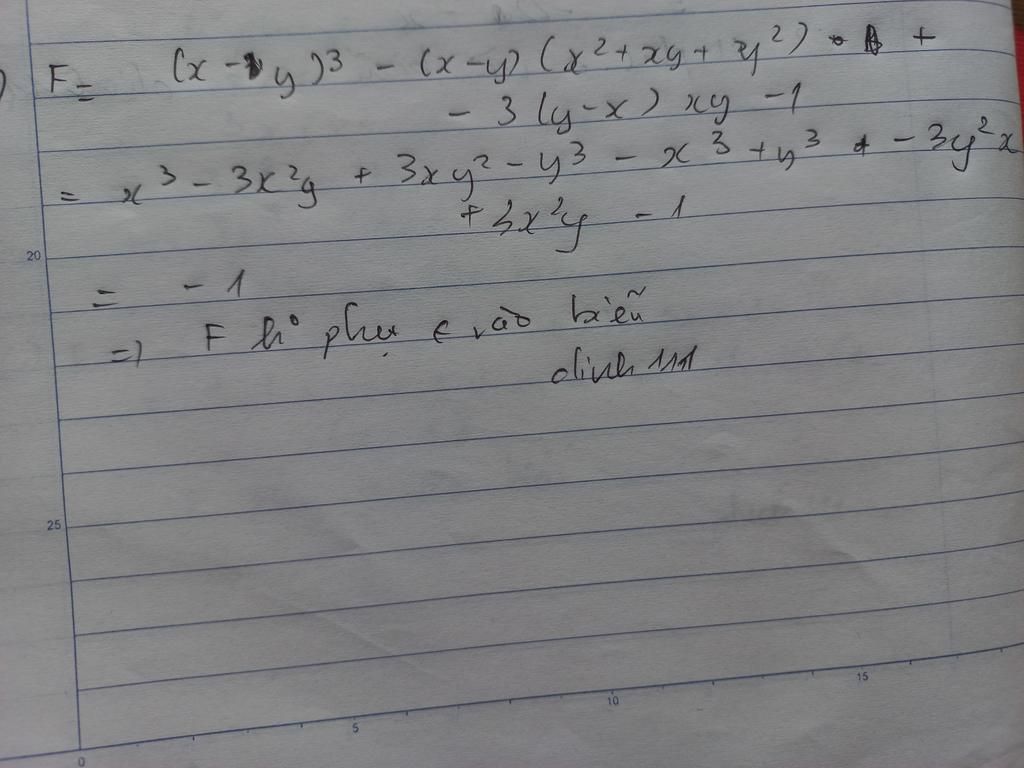 F = (x - y)³ - (x-y) (x² + xy + y²) +
- 3 (y-x) xy - 1
= x³ - 3x²y + 3xy² - y³ - x³ + y³ - 3y²x
+ 3x²y - 1
20
= - 1
=> F k° phụ ∈ vào biến
25
0 5 10 15